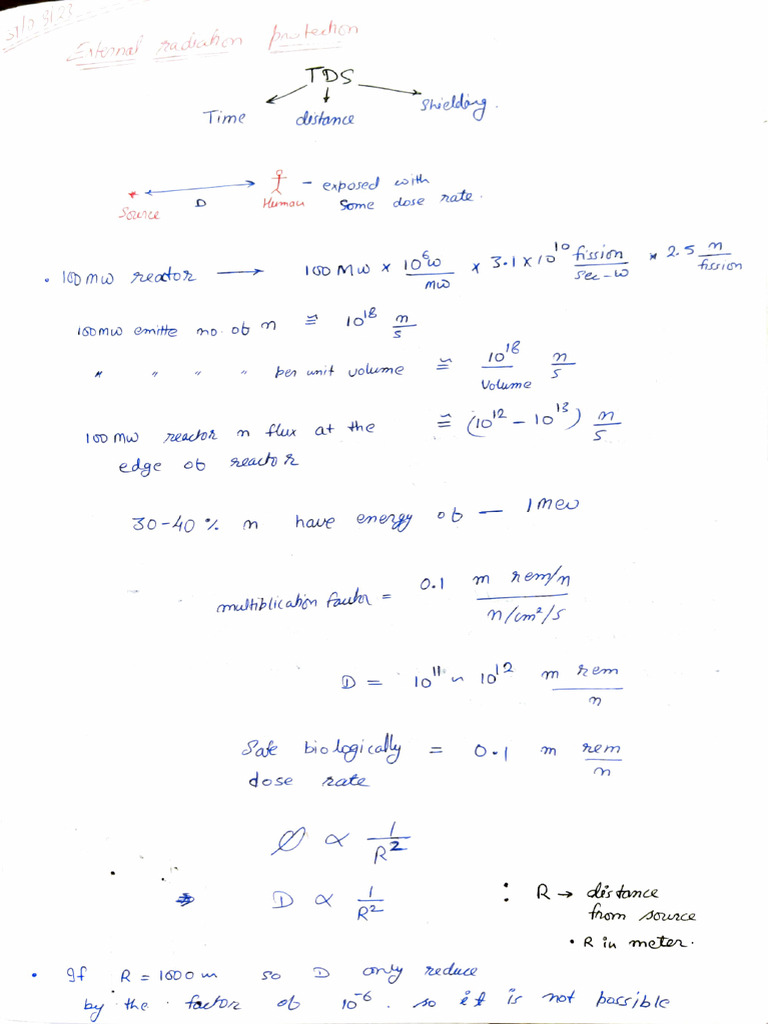 External radiation protection
TDS
Time distance Shielding.
Source D Human – exposed with
some dose rate.
• 100 MW reator ⟶ 100 MW × 10⁶W/MW × 3.1 × 10¹⁰ fission/sec-W × 2.5 n/fission
100MW emitte no. of n ≅ 10¹⁸ n/s
" " " " per unit volume ≅ 10¹⁸/Volume n/s
100 MW reactor n flux at the ≅ (10¹² – 10¹³) n/s
edge of reactor
30-40 % n have energy of — 1 mev
multiplication factor = 0.1 m rem/n / n/cm²/s
D = 10¹¹ ~ 10¹² m rem/n
Safe biologically = 0.1 m rem/n
dose rate
Ø ∝ 1/R²
D ∝ 1/R² : R → distance
from source
• R in meter.
• If R = 1000 m so D only reduce
by the factor of 10⁻⁶. so it is not possible